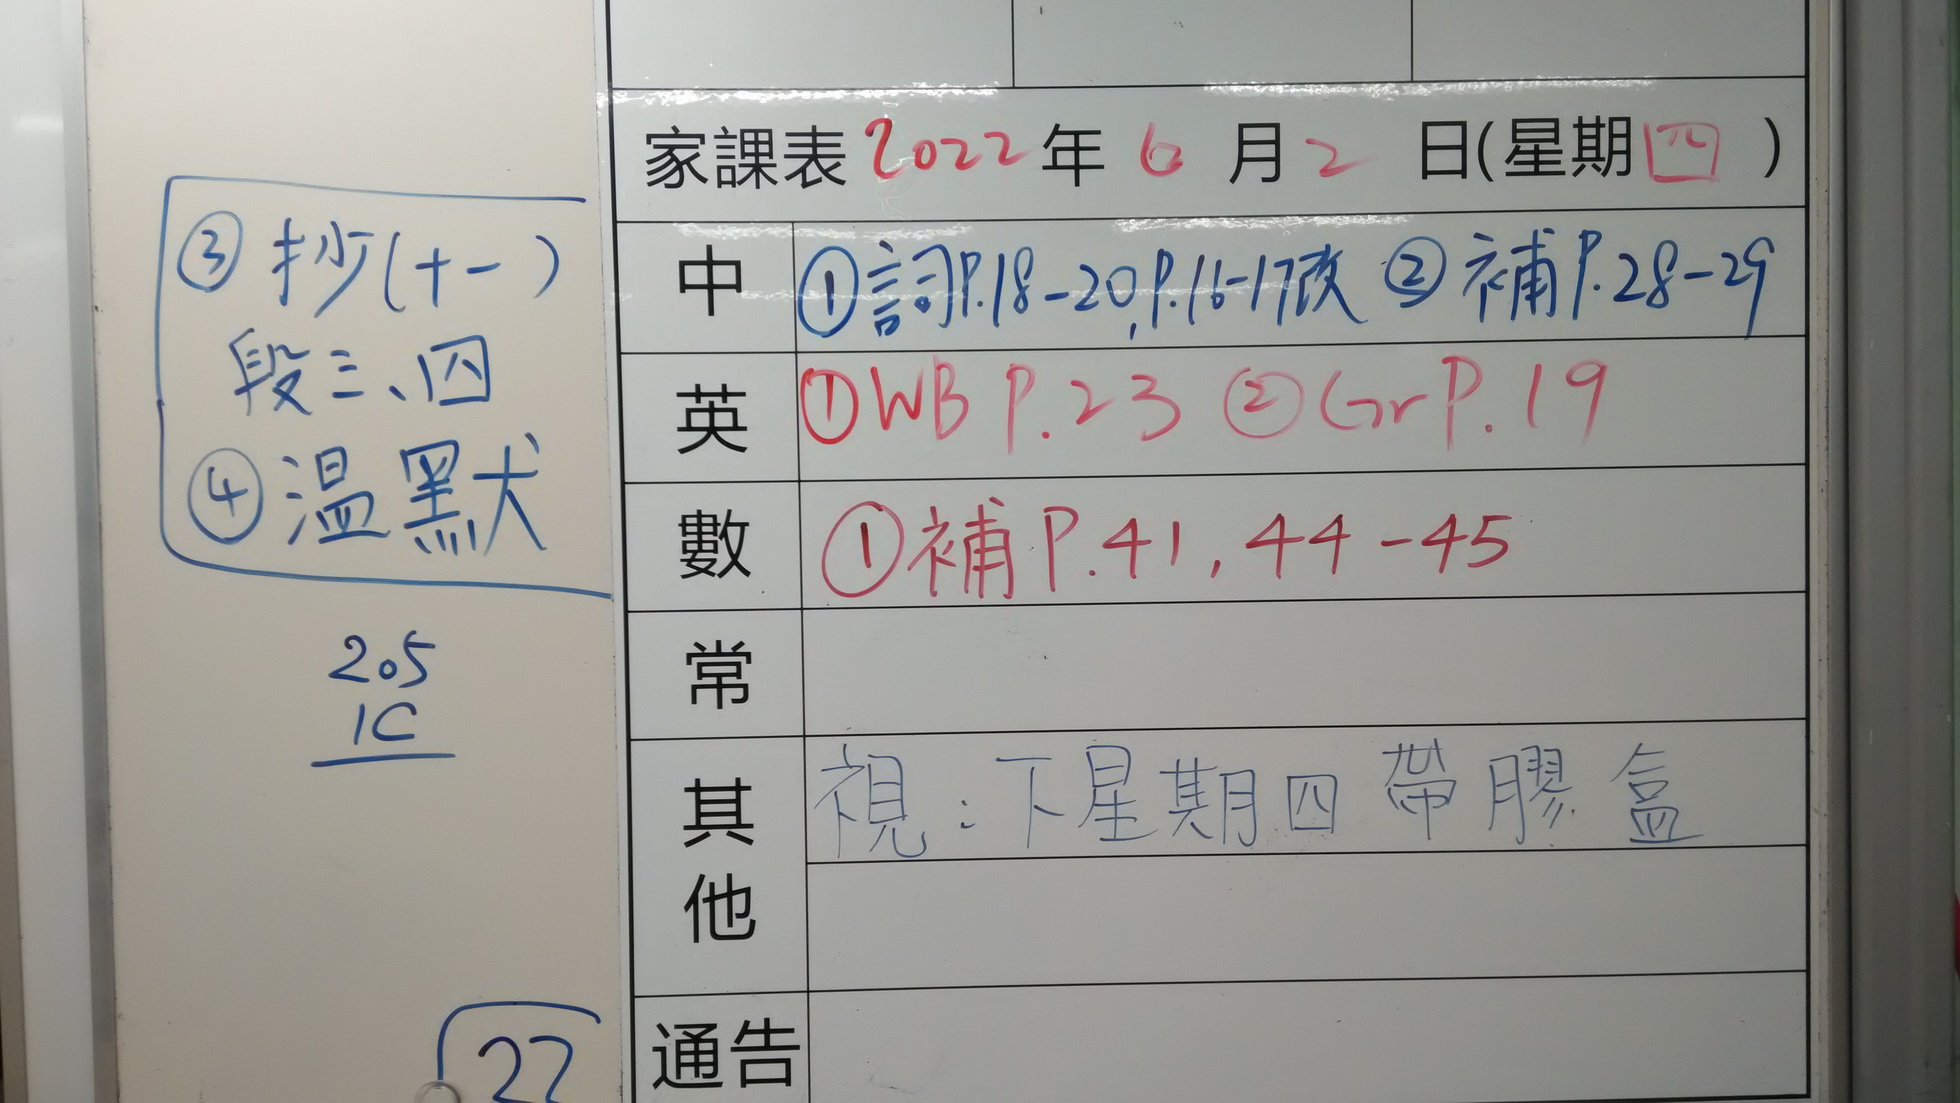 家課表 2022 年 6 月 2 日(星期四)
中 ①詞P.18-20,P.16-17改 ②補P.28-29
③抄(十一)
段三、四
④溫默
英 ①WB P.23 ②Gr P.19
數 ①補P.41,44-45
205
1C
常
其他 視:下星期四帶膠盒
通告
22